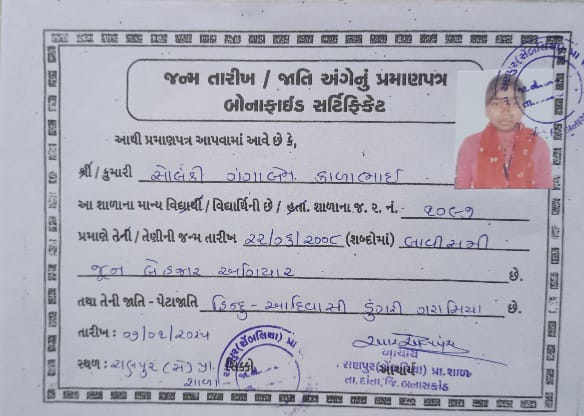 જન્મ તારીખ / જાતિ અંગેનું પ્રમાણપત્ર
બોનાફાઈડ સર્ટિફિકેટ
આથી પ્રમાણપત્ર આપવામાં આવે છે કે,
શ્રી / કુમારી સોલંકી ગંગાબેન કાળાભાઈ
આ શાળાના માન્ય વિદ્યાર્થી / વિદ્યાર્થિની છે / હતાં. શાળાના જ. ૨. નં. ૧૦૯૧
પ્રમાણે તેની / તેણીની જન્મ તારીખ (શબ્દોમાં) બાવીસમી
જૂન બેહજાર અગિયાર છે.
તથા તેની જાતિ - પેટાજાતિ હિન્દુ - આદિવાસી ડુંગરી ગરાસિયા છે.
તારીખ :
સ્થળ : રાણપુર (સેં) પ્રા. શાળા
સિક્કો
આચાર્ય
આચાર્ય
રાણપુર(સેંબલિયા) પ્રા.શાળા
તા.દાંતા, જિ.બનાસકાંઠા